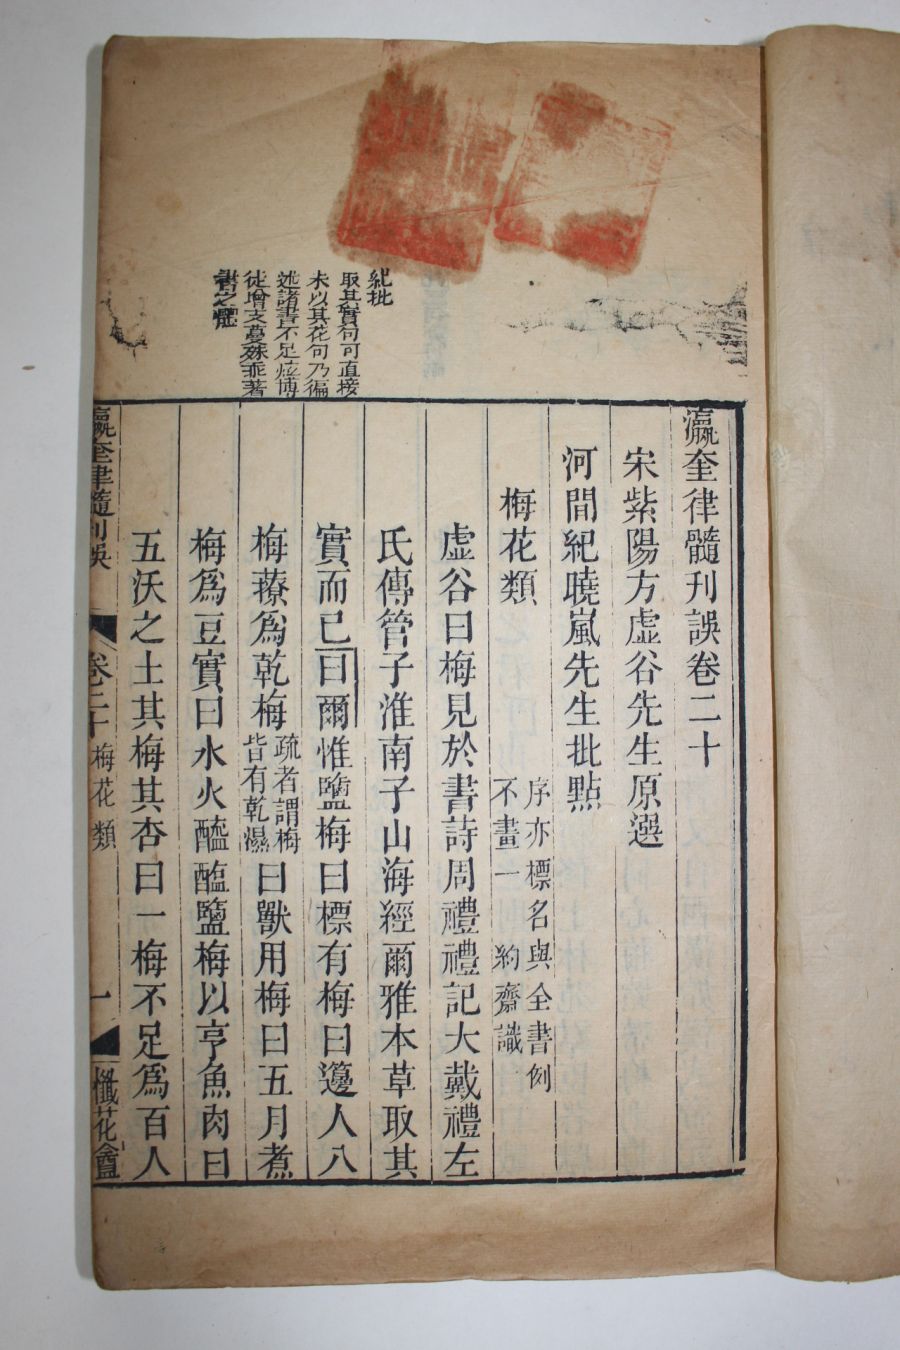 瀛奎律髓刊誤卷二十
宋紫陽方虛谷先生原選
河間紀曉嵐先生批點
梅花類
序亦標名與全書例
不畫一 約齋識
虛谷曰梅見於書詩周禮禮記大戴禮左
氏傳管子淮南子山海經爾雅本草取其
實而已曰爾惟鹽梅曰標有梅曰籩人八
梅䕩爲乾梅
疏者謂梅
皆有乾濕
曰獸用梅曰五月煮
梅爲豆實曰水火醯醢鹽梅以亨魚肉曰
五沃之土其梅其杏曰一梅不足爲百人
紀批
取其實句可直接
未以其花句乃徧
述諸書不足炫博
徒增支蔓殊乖著
書之體
瀛奎律髓刊誤
卷二十
梅花類
一
懺花盦